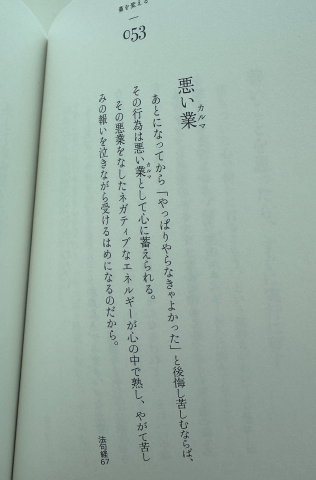 業を変える
053
悪い業
カルマ
あとになってから「やっぱりやらなきゃよかった」と後悔し苦しむならば、
その行為は悪い業として心に蓄えられる。
カルマ
その悪業をなしたネガティブなエネルギーが心の中で熟し、やがて苦し
みの報いを泣きながら受けるはめになるのだから。
法句経67